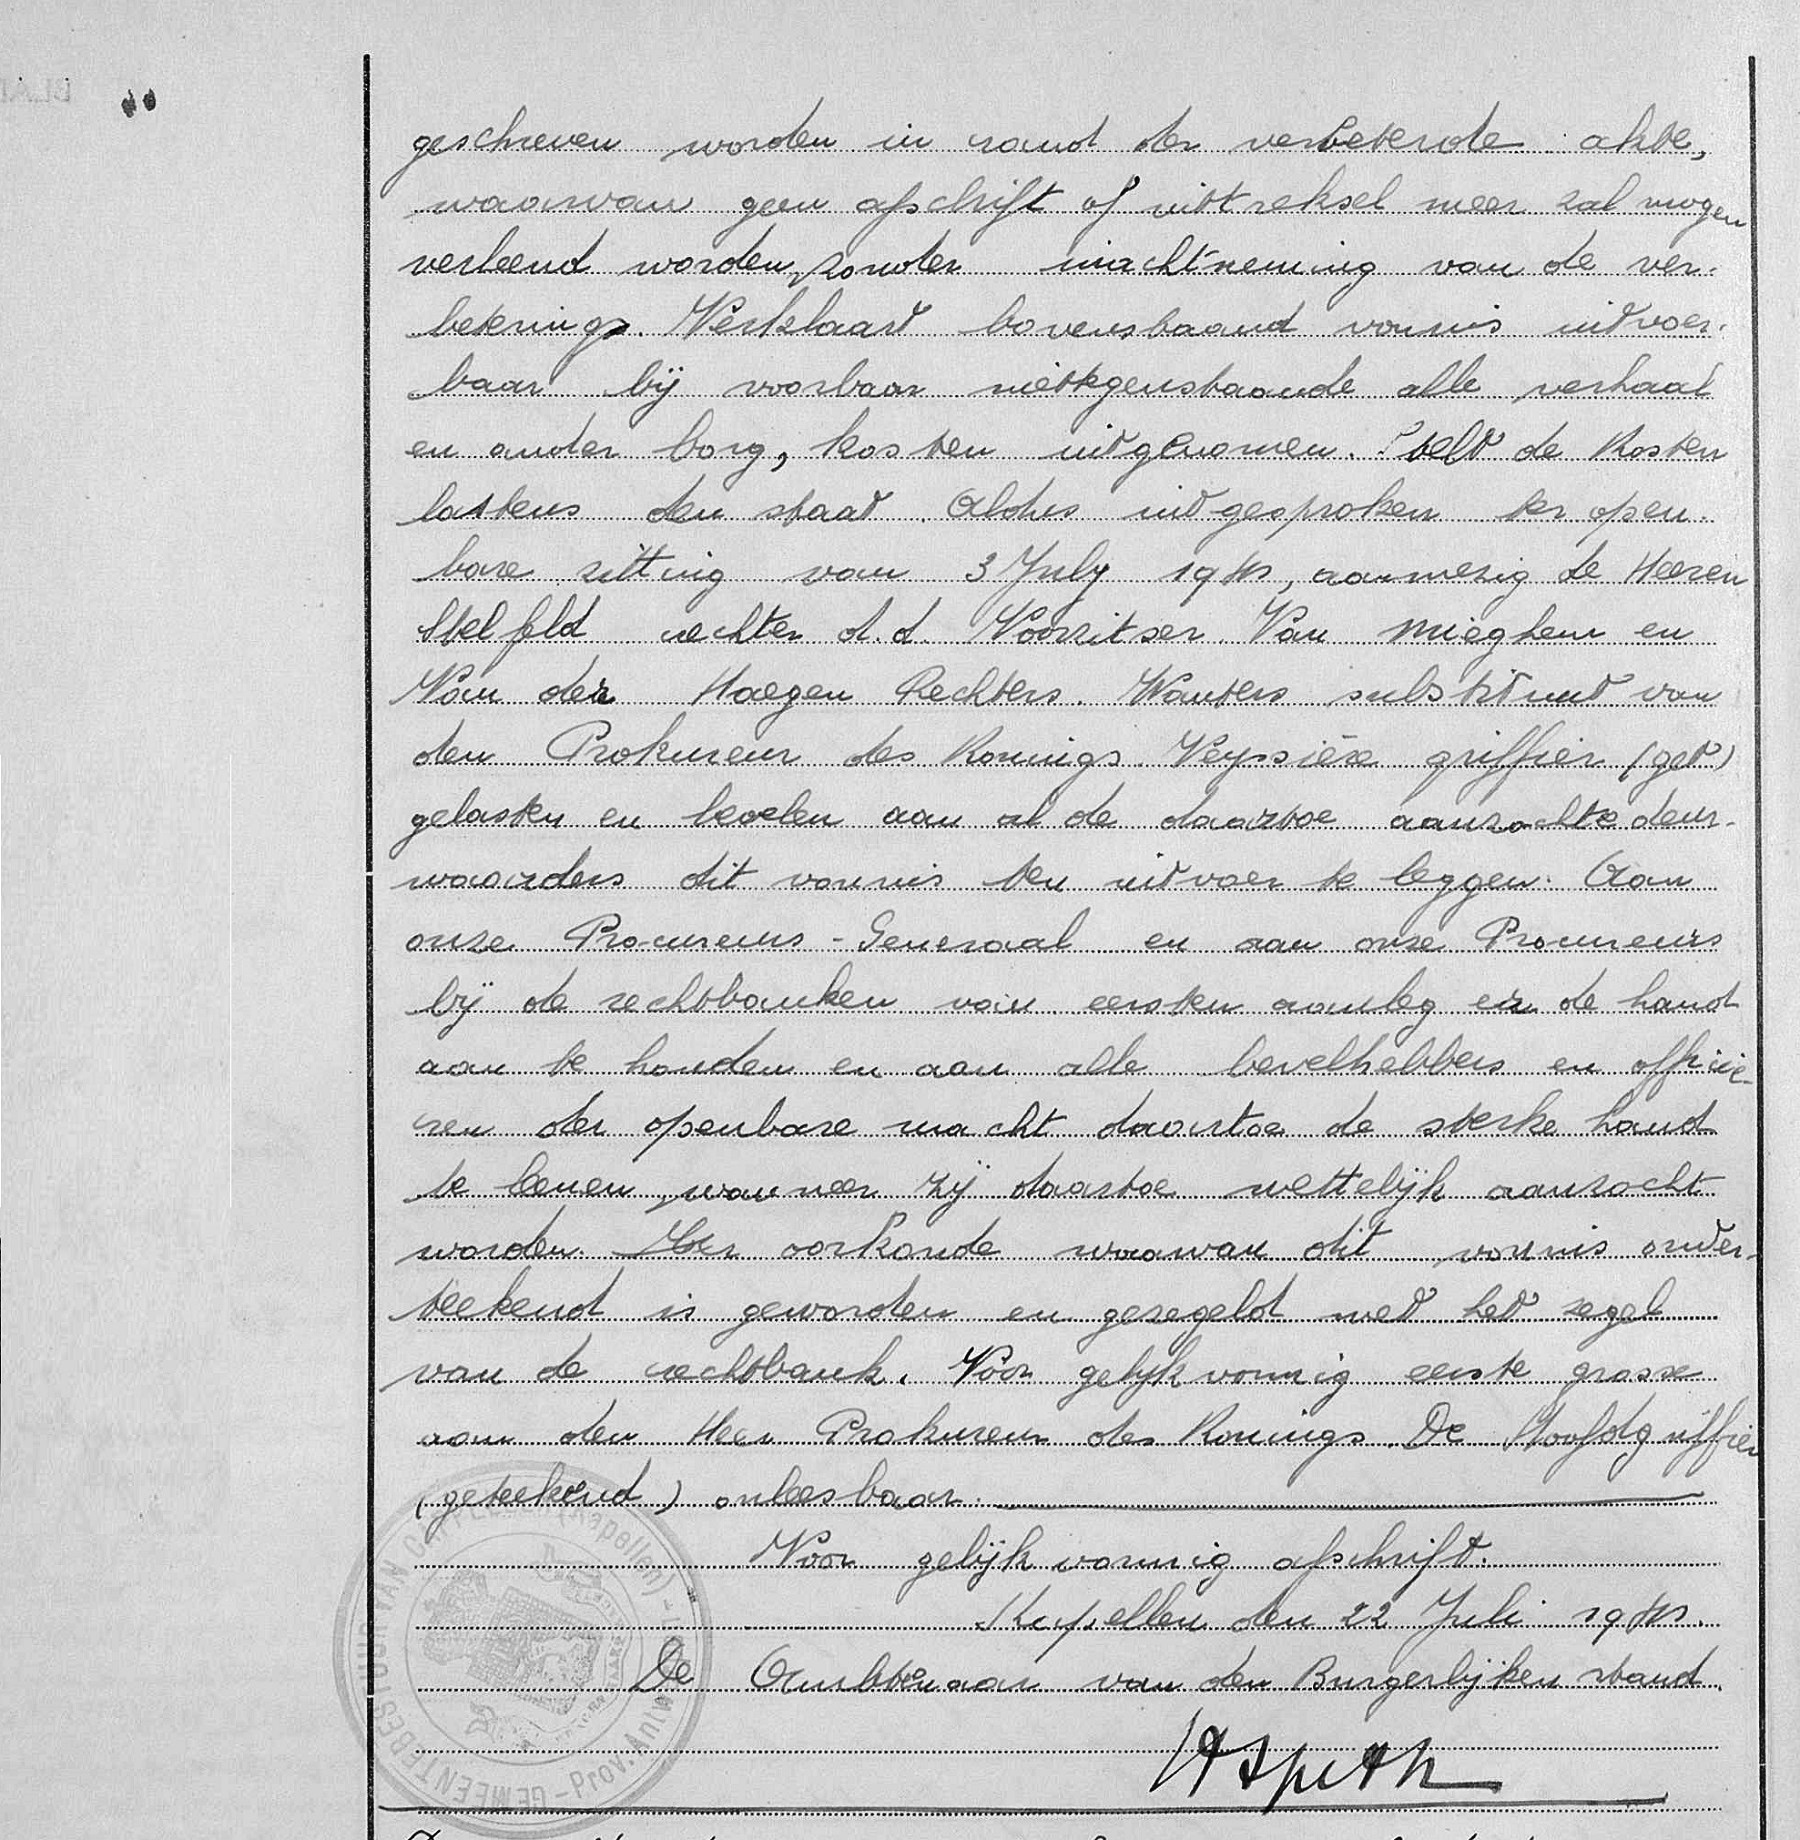 geschreven worden in rand der verbeterde akte,
waarvan geen afschrift of uittreksel meer zal mogen
verleend worden, zonder inachtneming van de ver-
betering. Verklaart bovenstaand vonnis uitvoer-
baar bij voorbaar niettegenstaande alle verhaal
en onder borg, kosten uitgenomen. Stelt de kosten
lastens den staat. Aldus uitgesproken ter open-
bare zitting van 3 July 1941, aanwezig de Heeren
Stelfeld rechter d.d. Voorzitser. Van Mieghem en
Van der Haegen Rechters. Wauters substituut van
den Prokureur des Konings. Veyssière griffier (get)
gelasten en bevelen aan al de daartoe aanzochte deur-
waarders dit vonnis ten uitvoer te leggen. Aan
onze Procureurs-Generaal en aan onze Procureurs
bij de rechtbanken van eersten aanleg er de hand
aan te houden en aan alle bevelhebbers en officie-
ren der openbare macht daartoe de sterke hand
te leenen, wanneer zij daartoe wettelijk aanzocht
worden. Ter oorkonde waarvan dit vonnis onder-
teekend is geworden en gezegeld met het zegel
van de rechtbank. Voor gelijkvormig eerste grosse
aan den Heer Prokureur des Konings. De Hoofdgriffier
(geteekend) onleesbaar.
Voor gelijkvormig afschrift.
Kapellen den 22 Juli 1941.
De Ambtenaar van den Burgerlijken stand.
GEMEENTEBESTUUR VAN CAPPELLEN (Kapellen) - Prov. Antw